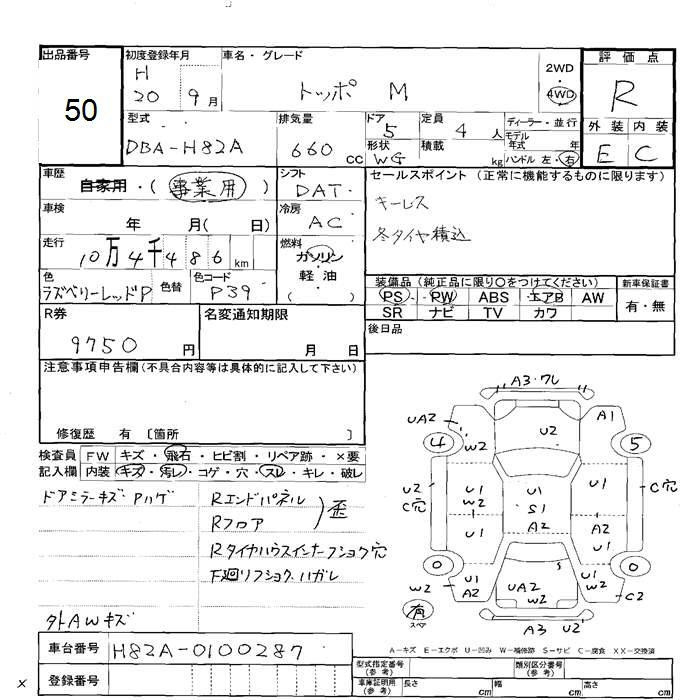 出品番号
50
初度登録年月
H
20 9月
車名・グレード
トッポ M
2WD
4WD
評価点
R
外装 内装
E C
型式
DBA-H82A
排気量
660 cc
ドア
5
形状
WG
定員
4 人
積載 kg
ディーラー・並行
モデル
年式 年
ハンドル 左・右
車歴
自家用・(事業用)
シフト
DAT
セールスポイント(正常に機能するものに限ります)
キーレス
冬タイヤ積込
車検
年 月( 日)
冷房
AC
走行
10万4千486km
燃料
ガソリン
軽油
( )
色
ラズベリーレッドP
色替
色コード
P39
装備品(純正品に限り○をつけてください)
PS PW ABS エアB AW
SR ナビ TV カワ
新車保証書
有・無
後日品
R券
9750 円
名変通知期限
月 日
注意事項申告欄(不具合内容等は具体的に記入して下さい)
修復歴 有 〔箇所 〕
検査員
記入欄
FW キズ・飛石・ヒビ割・リペア跡・×要
内装 キズ・汚レ・コゲ・穴・スレ・キレ・破レ
ドアミラーキズ Pハゲ
Rエンドパネル
Rフロア
歪
Rタイヤハウスインナーフショク穴
F廻リフショク、ハガレ
外AWキズ
A3・フレ
UA2
W2
U2
A1
4
5
U2
C穴
U1
W2
U1
S1
A2
U1
C穴
U1
A2
U1
0
0
W2
U1
A2
UA2
W2
S
U1
W2
C2
有
スペア
A3 U2
A-キズ E-エクボ U-凹み W-補修跡 S-サビ C-腐食 XX-交換済
車台番号
H82A-0100287
登録番号
型式指定番号
(参考)
類別区分番号
(参考)
車庫証明用
(参考)
長さ cm
幅 cm
高さ cm
×